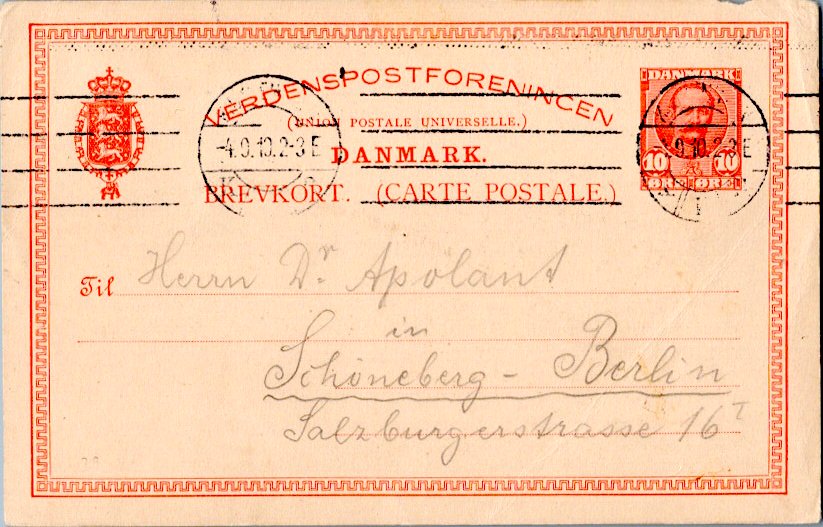 VERDENSPOSTFORENINGEN
(UNION POSTALE UNIVERSELLE.)
DANMARK.
BREVKORT. (CARTE POSTALE.)
-4.9.10.2-3 E
K
DANMARK
9.10.2-3 E
10 10
ØRE ØRE
Til Herrn Dr Apolant
in
Schöneberg - Berlin
Salzburgerstrasse 16 I